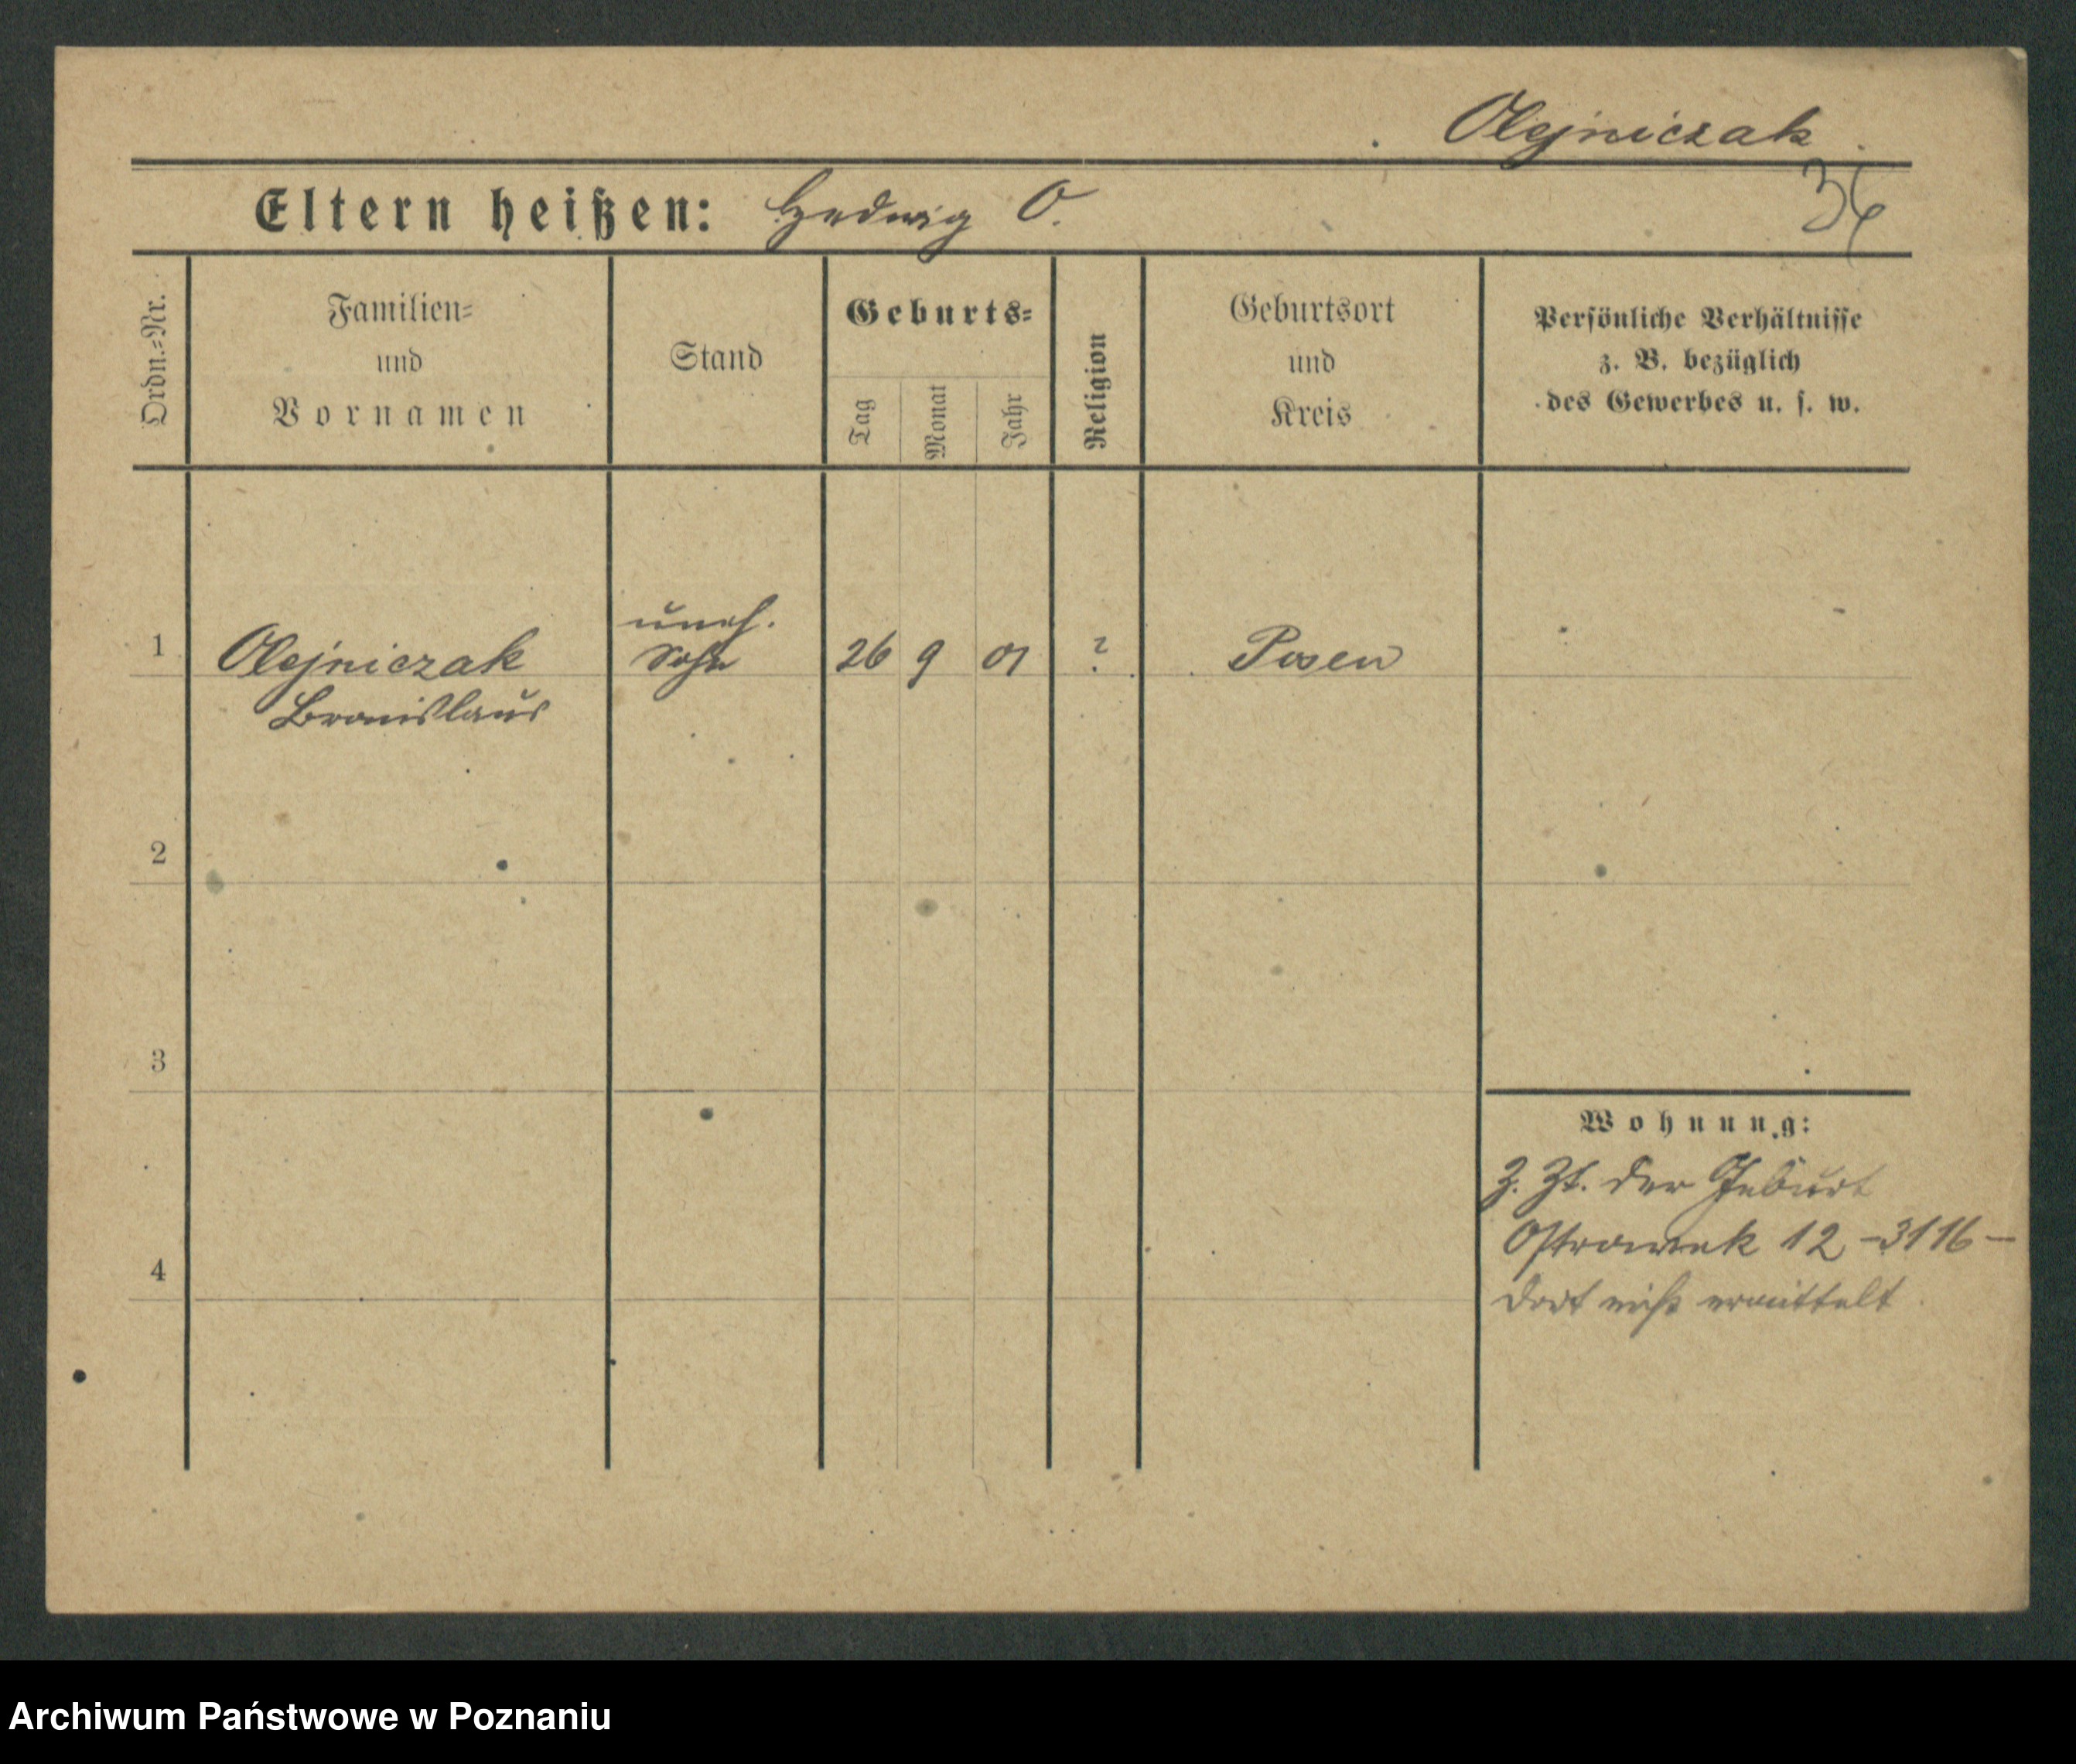 Olejniczak
Eltern heißen: Hedwig O.
36
Ordn.=Nr.
Familien=
und
Vornamen
Stand
Geburts=
Tag
Monat
Jahr
Religion
Geburtsort
und
Kreis
Persönliche Verhältnisse
z. B. bezüglich
des Gewerbes u. s. w.
uneh.
1 Olejniczak Sohn 26 9 01 ? Posen
Bronislaus
2
3
Wohnung:
z. Zt. der Geburt
Ostrowek 12 -3116-
4
dort nicht ermittelt
Archiwum Państwowe w Poznaniu